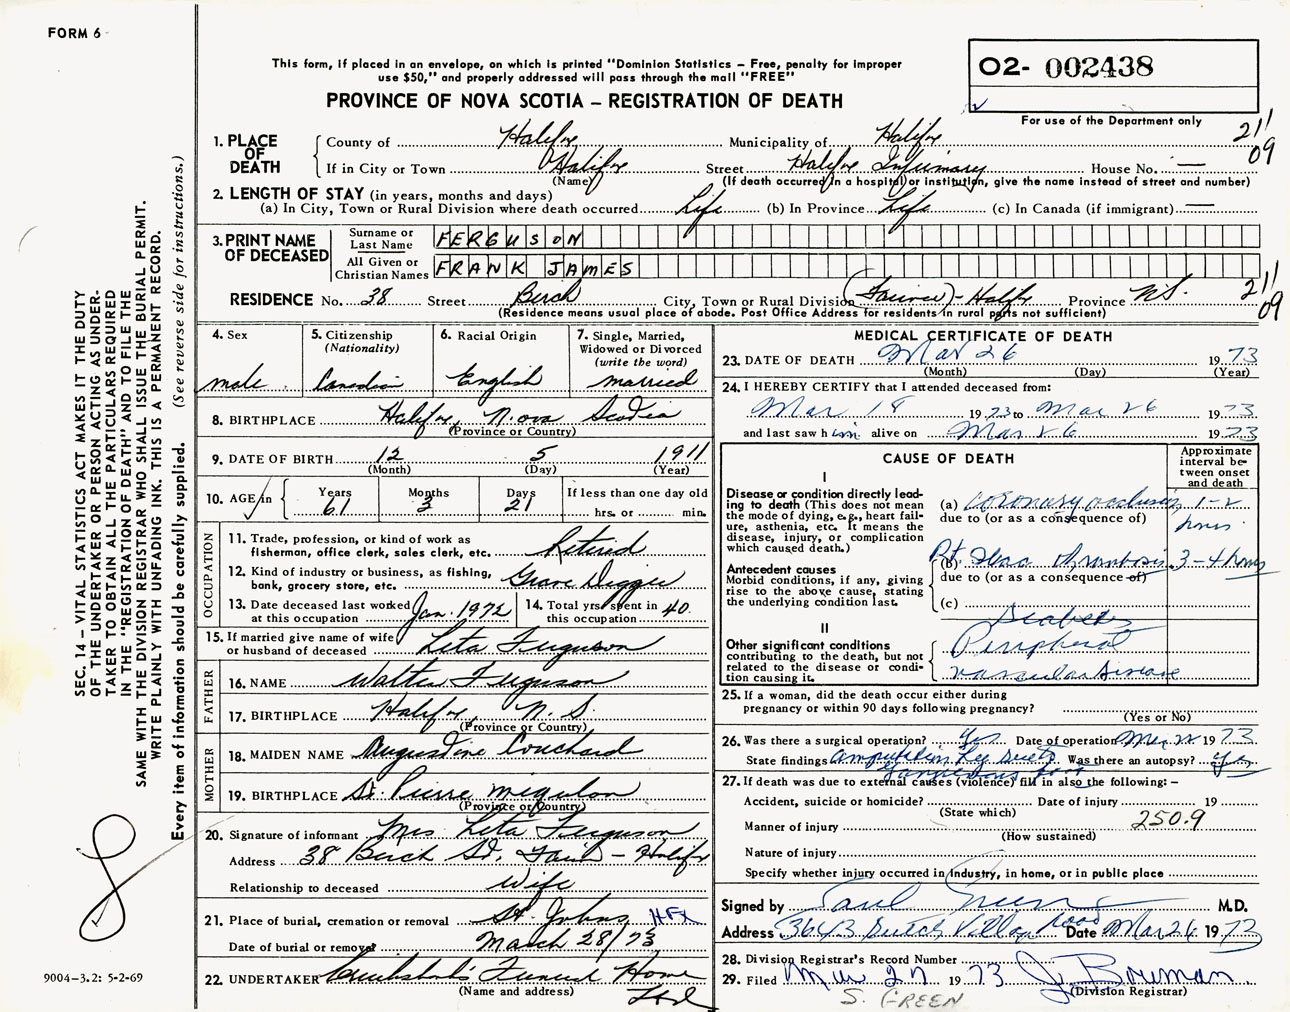 FORM 6
This form, if placed in an envelope, on which is printed "Dominion Statistics – Free, penalty for improper
use $50," and properly addressed will pass through the mail "FREE"
PROVINCE OF NOVA SCOTIA – REGISTRATION OF DEATH
02- 002438
For use of the Department only
211
09
1. PLACE OF DEATH
County of Halifax Municipality of Halifax
If in City or Town Halifax Street Halifax Infirmary House No. —
(Name) (If death occurred in a hospital or institution, give the name instead of street and number)
2. LENGTH OF STAY (in years, months and days)
(a) In City, Town or Rural Division where death occurred Life (b) In Province Life (c) In Canada (if immigrant) —
3. PRINT NAME OF DECEASED
Surname or Last Name FERGUSON
All Given or Christian Names FRANK JAMES
RESIDENCE No. 38 Street Birch City, Town or Rural Division (Fairv) - Halifax Province N.S.
211
09
(Residence means usual place of abode. Post Office Address for residents in rural parts not sufficient)
4. Sex
male
5. Citizenship
(Nationality)
Canadian
6. Racial Origin
English
7. Single, Married,
Widowed or Divorced
(write the word)
married
8. BIRTHPLACE Halifax, Nova Scotia
(Province or Country)
9. DATE OF BIRTH 12 5 1911
(Month) (Day) (Year)
10. AGE in
Years 61
Months 3
Days 21
If less than one day old
hrs. or min.
OCCUPATION
11. Trade, profession, or kind of work as
fisherman, office clerk, sales clerk, etc. Retired
12. Kind of industry or business, as fishing,
bank, grocery store, etc. Grave Digger
13. Date deceased last worked
at this occupation Jan. 1972
14. Total yrs. spent in
this occupation 40
15. If married give name of wife
or husband of deceased Leta Ferguson
FATHER
16. NAME Walter Ferguson
17. BIRTHPLACE Halifax, N.S.
(Province or Country)
MOTHER
18. MAIDEN NAME Augustine Couchard
19. BIRTHPLACE St. Pierre Miqulon
(Province or Country)
20. Signature of informant Mrs Leta Ferguson
Address 38 Birch St, Fairv - Halifax
Relationship to deceased Wife
21. Place of burial, cremation or removal St. Johns HFX
Date of burial or removal March 28/73
22. UNDERTAKER Cruikshank's Funeral Home
(Name and address) Ltd
MEDICAL CERTIFICATE OF DEATH
23. DATE OF DEATH Mar 26 1973
(Month) (Day) (Year)
24. I HEREBY CERTIFY that I attended deceased from:
Mar 18 1973 to Mar 26 1973
and last saw him alive on Mar 26 1973
CAUSE OF DEATH
Approximate
interval be-
tween onset
and death
I
Disease or condition directly lead-
ing to death (This does not mean
the mode of dying, e.g., heart fail-
ure, asthenia, etc. It means the
disease, injury, or complication
which caused death.)
(a) coronary occlusion 1-2
due to (or as a consequence of) hours
Antecedent causes
Morbid conditions, if any, giving
rise to the above cause, stating
the underlying condition last.
(b) Rt. Iliac Thrombosis 3-4 hours
due to (or as a consequence of)
(c)
II
Other significant conditions
contributing to the death, but not
related to the disease or condi-
tion causing it.
Diabetes
Peripheral
vascular disease
25. If a woman, did the death occur either during
pregnancy or within 90 days following pregnancy?
(Yes or No)
26. Was there a surgical operation? Yes Date of operation Mar 22 1973
State findings amputation leg due to Was there an autopsy? Yes
gangrenous foot
27. If death was due to external causes (violence) fill in also the following:–
Accident, suicide or homicide? Date of injury 19
(State which)
Manner of injury 250.9
(How sustained)
Nature of injury
Specify whether injury occurred in industry, in home, or in public place
Signed by Paul M.D.
Address 3643 Dutch Village Road Date Mar 26 1973
28. Division Registrar's Record Number
29. Filed Mar 27 1973 J. Bowman
(Division Registrar)
S. GREEN
SEC. 14 – VITAL STATISTICS ACT MAKES IT THE DUTY
OF THE UNDERTAKER OR PERSON ACTING AS UNDER-
TAKER TO OBTAIN ALL THE PARTICULARS REQUIRED
IN THE "REGISTRATION OF DEATH" AND TO FILE THE
SAME WITH THE DIVISION REGISTRAR WHO SHALL ISSUE THE BURIAL PERMIT.
WRITE PLAINLY WITH UNFADING INK. THIS IS A PERMANENT RECORD.
Every item of information should be carefully supplied. (See reverse side for instructions.)
9004–3.2: 5-2-69